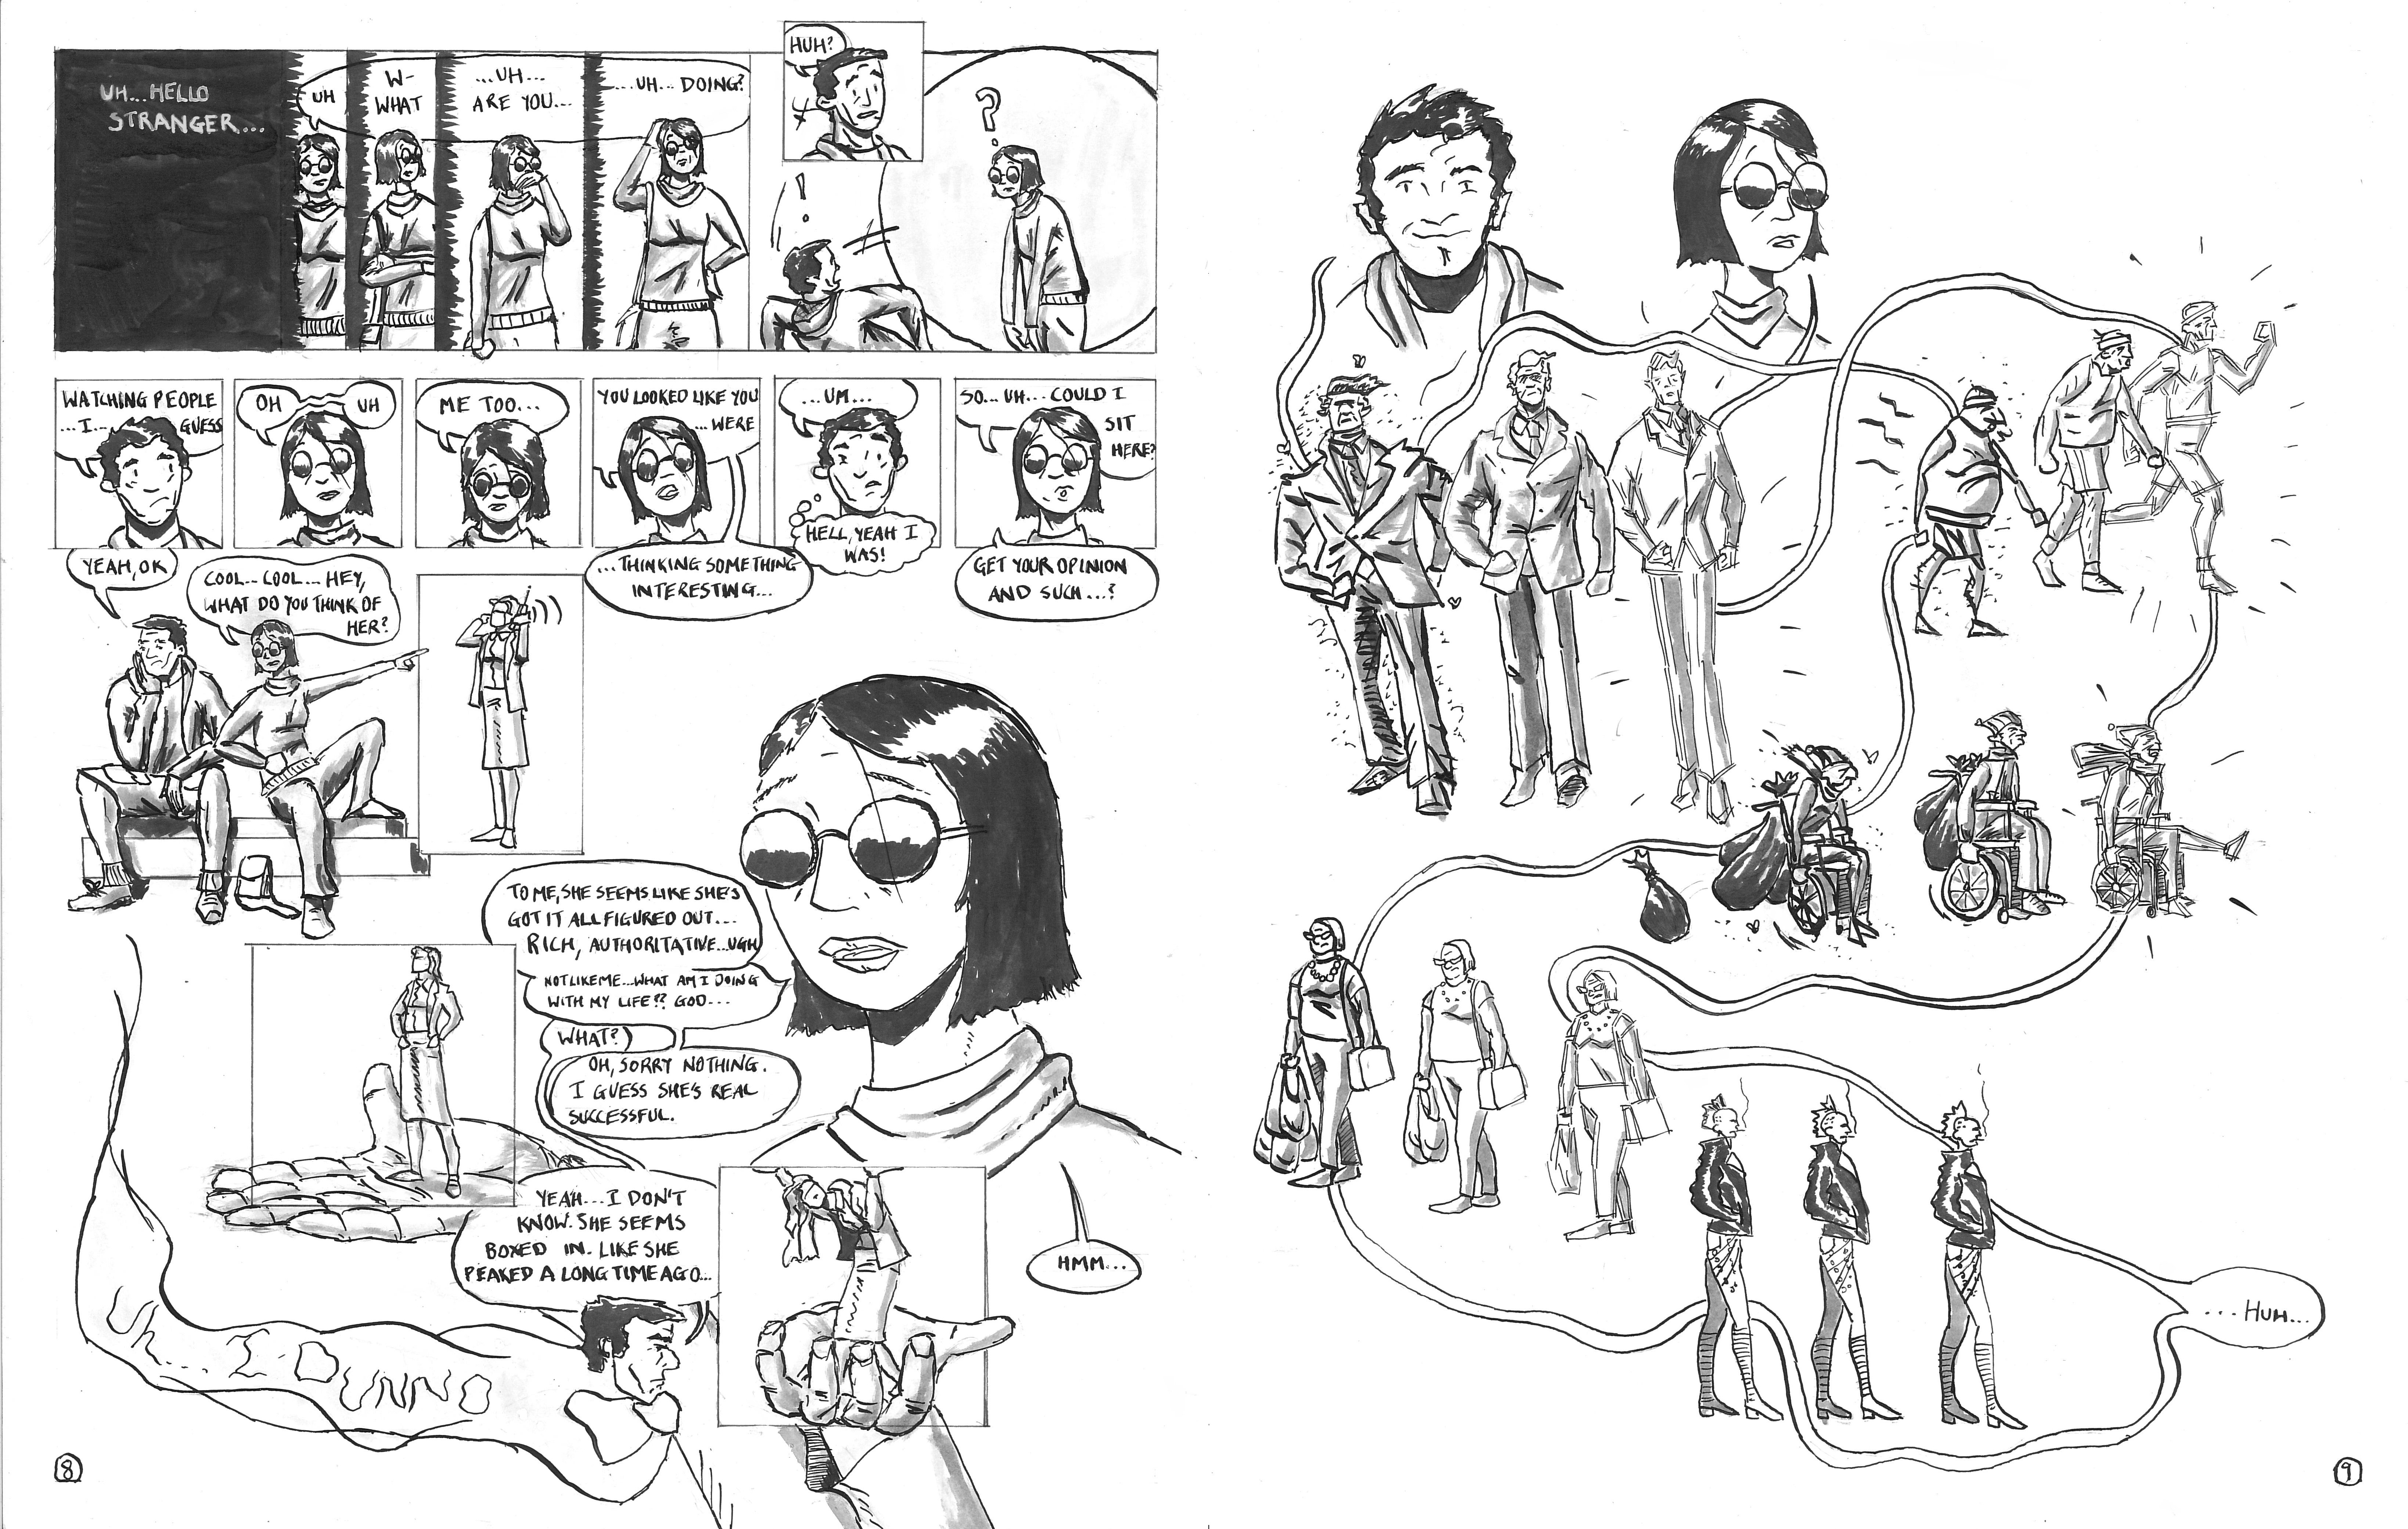 UH...HELLO
STRANGER...
UH
W-
WHAT
...UH...
ARE YOU...
...UH... DOING?
HUH?
!
?
WATCHING PEOPLE
...I... GUESS
OH UH
ME TOO...
YOU LOOKED LIKE YOU
... WERE
...THINKING SOMETHING
INTERESTING...
...UM...
HELL, YEAH I
WAS!
SO... UH... COULD I
SIT
HERE?
GET YOUR OPINION
AND SUCH...?
YEAH, OK
COOL... COOL... HEY,
WHAT DO YOU THINK OF
HER?
TO ME, SHE SEEMS LIKE SHE'S
GOT IT ALL FIGURED OUT...
RICH, AUTHORITATIVE...UGH
NOT LIKE ME...WHAT AM I DOING
WITH MY LIFE?? GOD...
WHAT?
OH, SORRY NOTHING.
I GUESS SHE'S REAL
SUCCESSFUL.
YEAH...I DON'T
KNOW. SHE SEEMS
BOXED IN. LIKE SHE
PEAKED A LONG TIME AGO...
HMM...
UH... I DUNNO
8
...HUH...
9